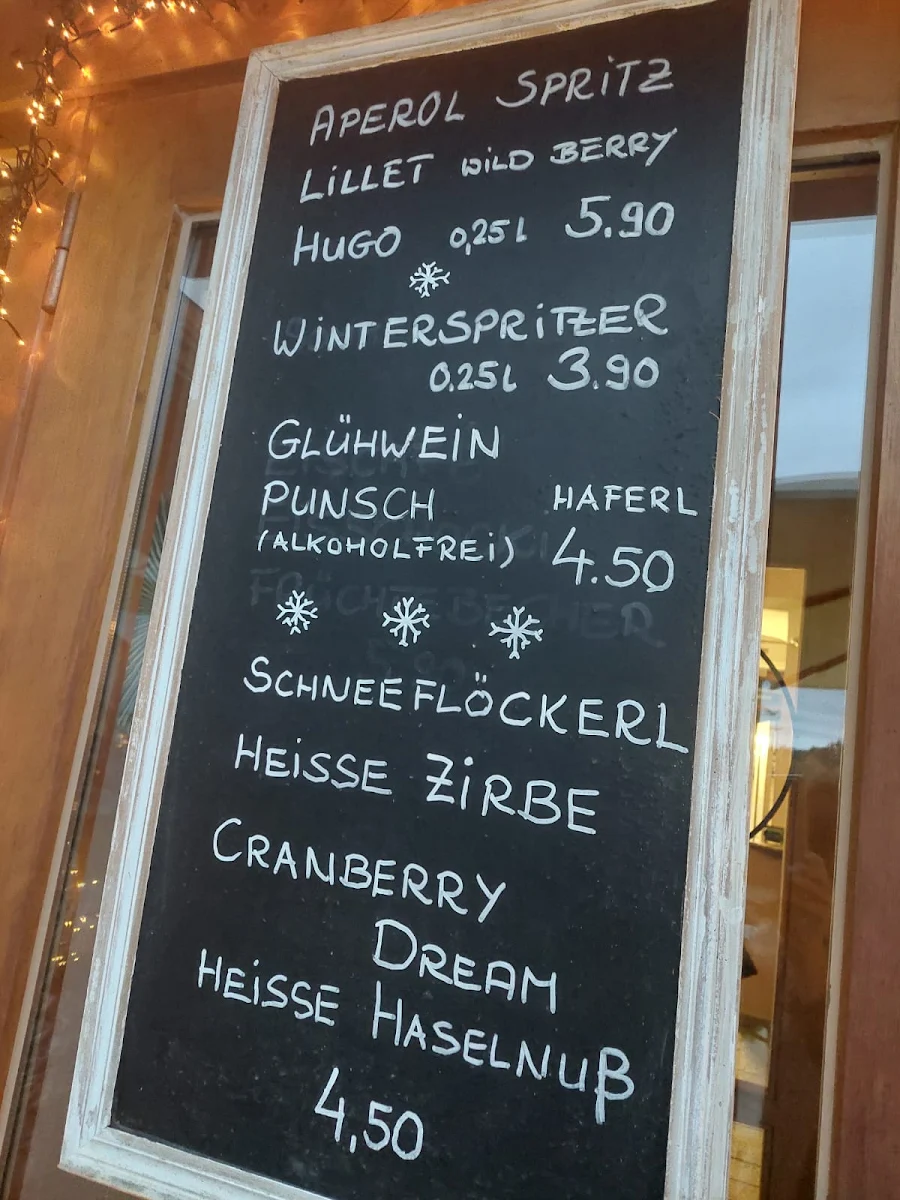 APEROL SPRITZ
LILLET WILD BERRY
HUGO 0,25l 5.90
WINTERSPRITZER
0.25l 3.90
GLÜHWEIN
PUNSCH HAFERL
(ALKOHOLFREI) 4.50
SCHNEEFLÖCKERL
HEISSE ZIRBE
CRANBERRY
DREAM
HEISSE HASELNUß
4,50